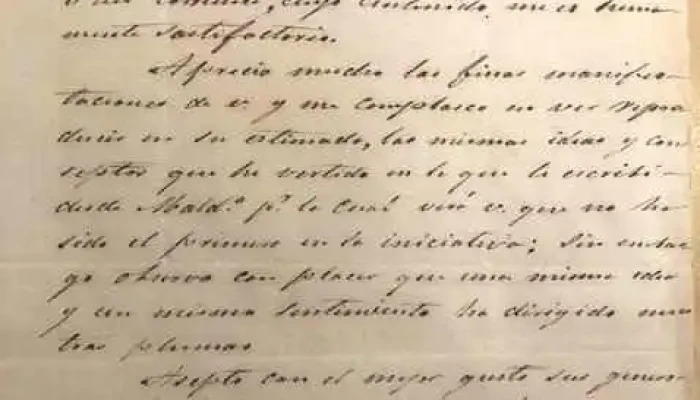 contenido me es suma
mente sastifactorio.
Aprecio mucho las finas manifes
taciones de v. y me complasco en ver repro
ducir en su estimada, las mismas ideas y con
septos que he vertido en la que le escribi
desde Mald.º p.r lo cual verá v. que no ha
sido el primero en la iniciativa; sin embar
go observo con placer que una misma idea
y un mismo sentimiento ha dirigido nues
tras plumas
Asepto con el mejor gusto sus genero